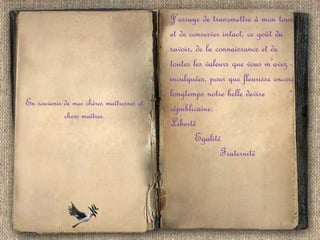 En souvenir de mes chères maîtresses et
chers maîtres.
J'essaye de transmettre à mon tour
et de conserver intact, ce goût du
savoir, de la connaissance et de
toutes les valeurs que vous m'avez
inculquées, pour que fleurisse encore
longtemps notre belle devise
républicaine:
Liberté
Egalité
Fraternité